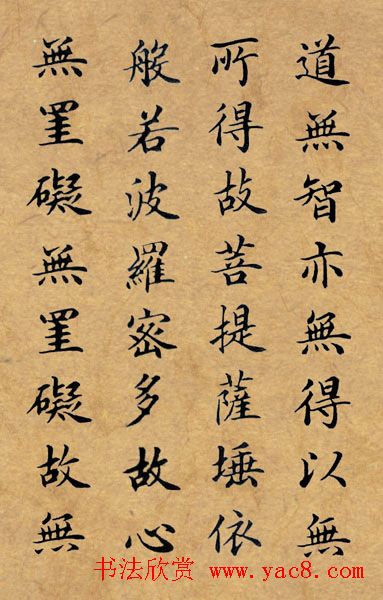 道無智亦無得以無
所得故菩提薩埵依
般若波羅密多故心
無罣礙無罣礙故無
书法欣赏 www.yac8.com